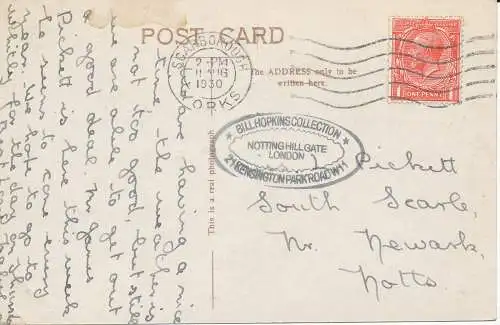 POST CARD
The ADDRESS only to be
written here.
SCARBOROUGH
1930
YORKS
ONE PENNY
BILL HOPKINS COLLECTION
NOTTING HILL GATE
LONDON
21 KENSINGTON PARK ROAD W11
This is a real photograph
Pickett
South Scarle,
Nr. Newark,
Notts.
are having a nice
time - the weather is
not too good, but still
we are able to get out
a good deal. Mr James
Pickett is here this week
he seems to come every
year. We hope to go to
Whitby for a day